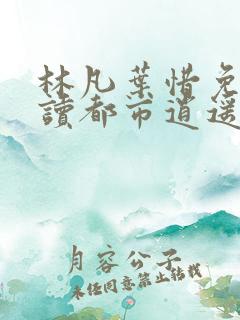 林凡葉惜免
讀都市逍遙
月容公子
未經同意禁止轉載